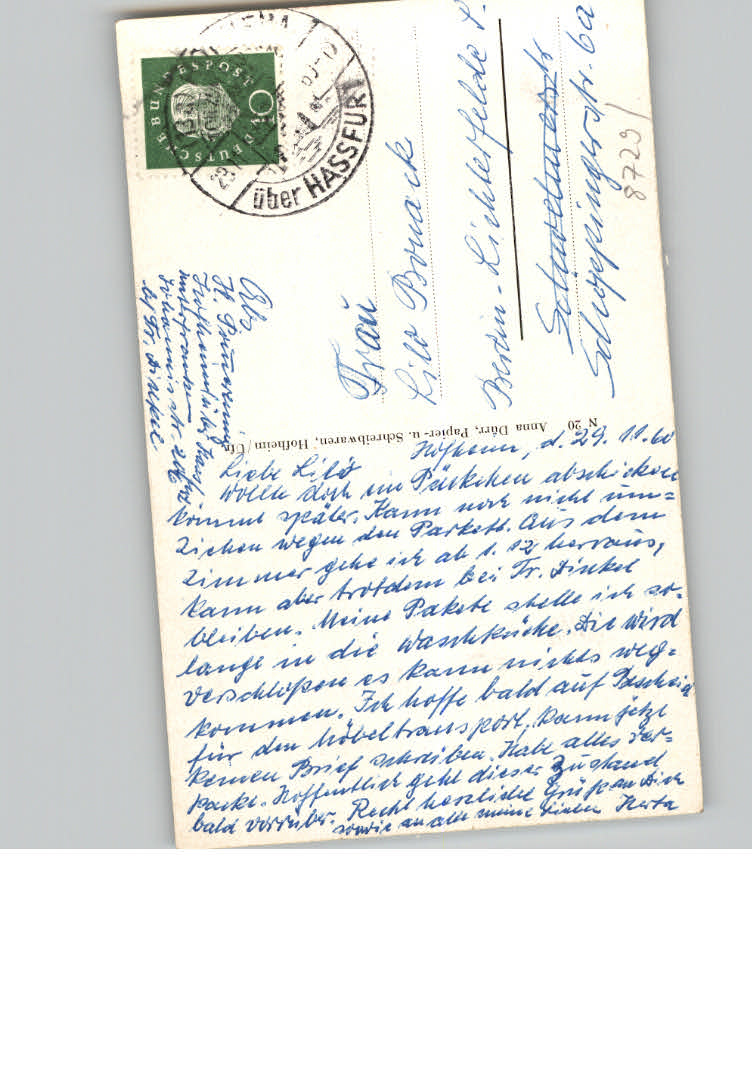 DEUTSCHE BUNDESPOST
über HASSFURT
Abs
Hofheim/Ufr
b/ Fr. Dinkel
Frau
Lilo Bonack
Berlin-Lichterfelde
Schöppingerstr. 6a
8729/
N 20 Anna Dürr, Papier- u. Schreibwaren, Hofheim/Ufr.
Hofheim, d. 29.11.60
Liebe Lilo
wollte doch ein Päckchen abschicken
kommt später. Kann noch nicht um=
ziehen wegen den Parkett. Aus dem
Zimmer gehe ich ab 1.12 herraus,
kann aber trotdem bei Fr. Dinkel
bleiben. Meine Pakete stelle ich so-
lange in die Waschküche. Die wird
verschloßen es kann nichts weg=
kommen. Ich hoffe bald auf Bescheid
für den Möbeltransport, kann jetzt
keinen Brief schreiben. Habe alles ver-
packt. Hoffentlich geht dieser Zustand
bald vorrüber. Recht herzliche Grüße an Dich
sowie an alle meine Lieben Herta